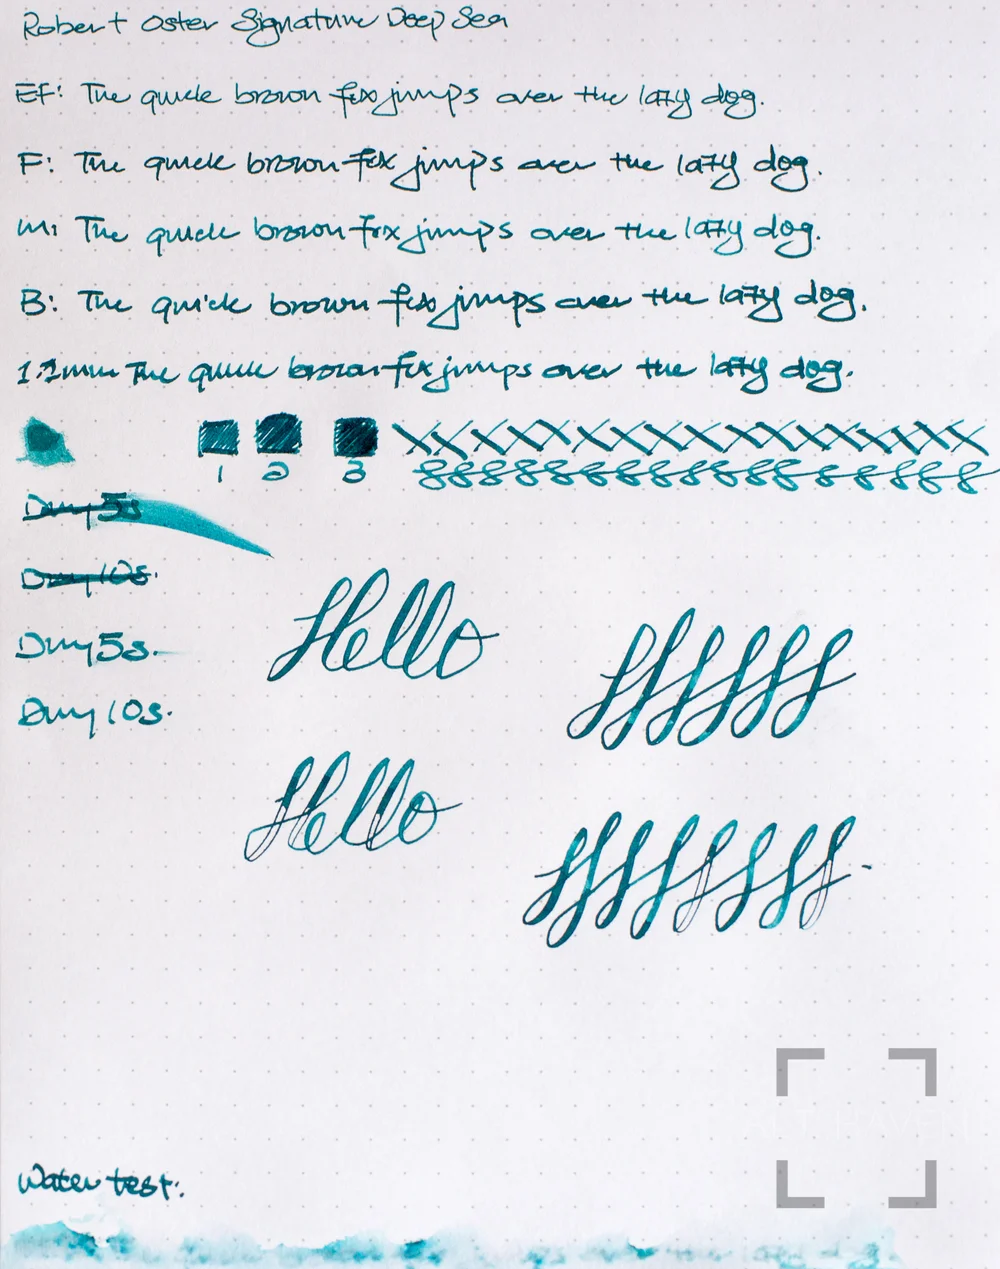 Robert Oster Signature Deep Sea
EF: The quick brown fox jumps over the lazy dog.
F: The quick brown fox jumps over the lazy dog.
M: The quick brown fox jumps over the lazy dog.
B: The quick brown fox jumps over the lazy dog.
1.1mm The quick brown fox jumps over the lazy dog.
1 2 3
Dry 5s
Dry 10s.
Dry 5s.
Dry 10s.
Hello
Hello
Water test: